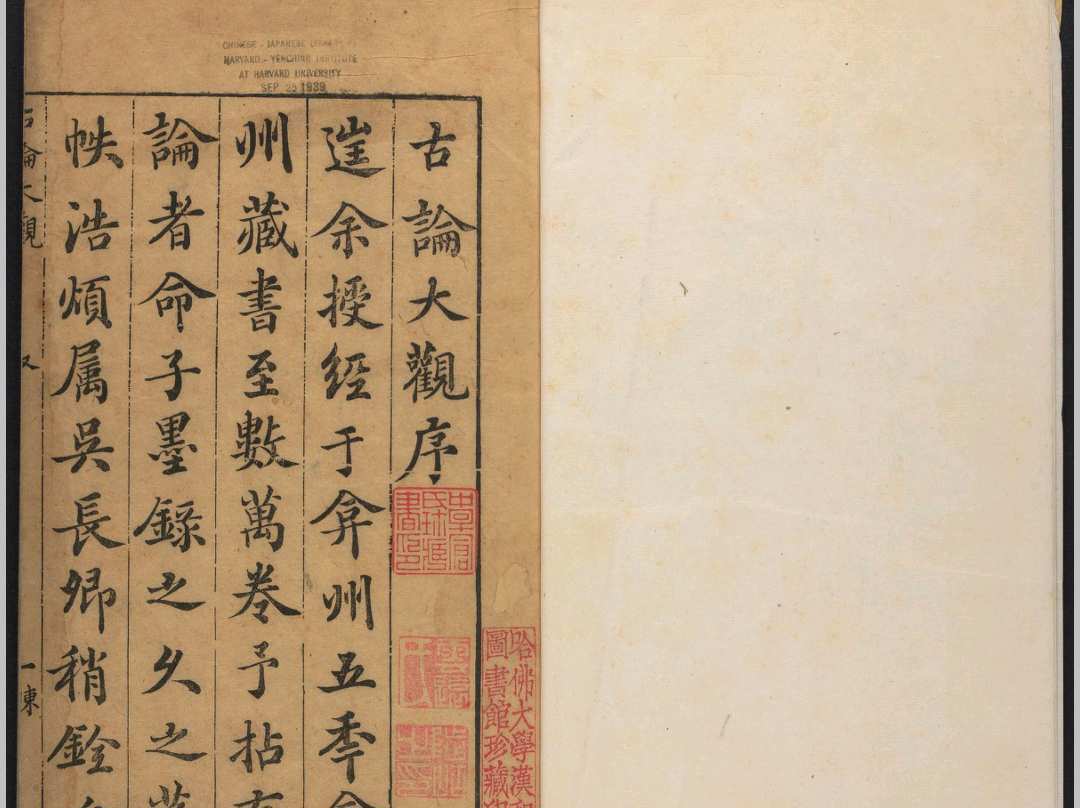 CHINESE - JAPANESE LIBRARY
HARVARD - YENCHING INSTITUTE
AT HARVARD UNIVERSITY
SEP 25 1939
古論大觀序
余授經于弇州五秊
州藏書至數萬卷予拈
論者命子墨錄之久之
帙浩煩属吳長卿稍銓
古論大觀
哈佛大學漢和
圖書館珍藏